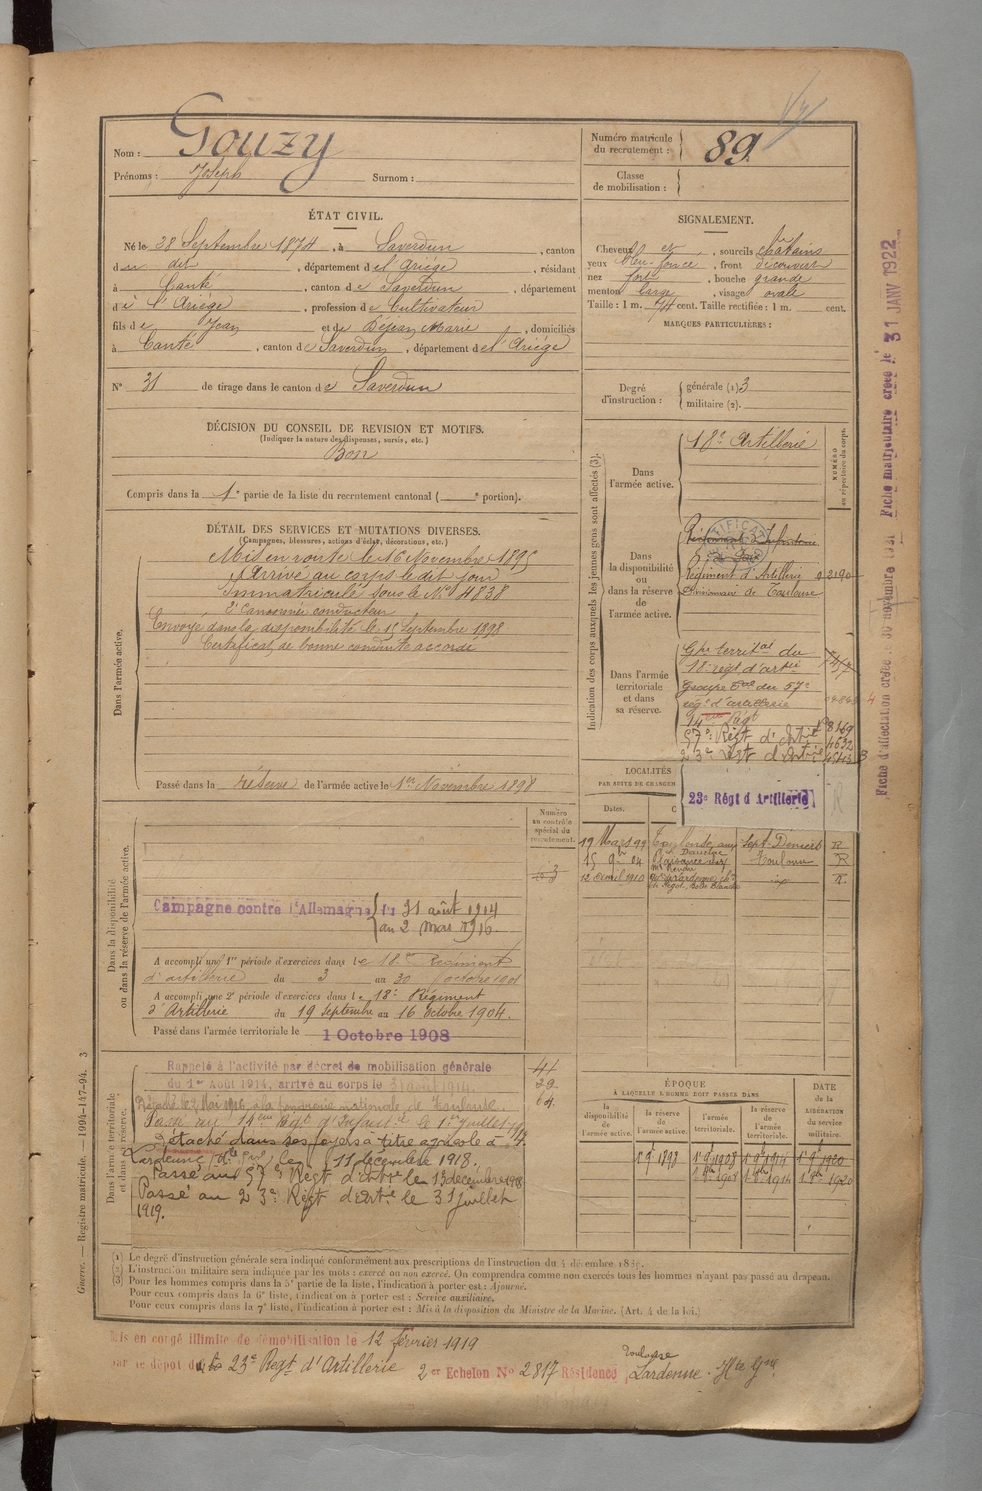 Nom : Gouzy
Prénoms : Joseph Surnom :
Numéro matricule du recrutement : 89.
Classe de mobilisation :
ÉTAT CIVIL.
Né le 28 Septembre 1874, à Saverdun, canton
du dit, département de l'Ariège, résidant
à Canté, canton de Saverdun, département
de l'Ariège, profession de Cultivateur
fils de Jean et de Déjean Marie, domiciliés
à Canté, canton de Saverdun, département de l'Ariège
N° 31 de tirage dans le canton de Saverdun
DÉCISION DU CONSEIL DE REVISION ET MOTIFS.
(Indiquer la nature des dispenses, sursis, etc.)
Bon
Compris dans la 1e partie de la liste du recrutement cantonal ( e portion).
DÉTAIL DES SERVICES ET MUTATIONS DIVERSES.
(Campagnes, blessures, actions d'éclat, décorations, etc.)
Dans l'armée active.
Mis en route le 16 Novembre 1895
Arrivé au corps le dit jour
Immatriculé sous le N° 4838
2e Canonnier conducteur
Envoyé dans la disponibilité le 15 Septembre 1898
Certificat de bonne conduite accordé
Passé dans la réserve de l'armée active le 1er Novembre 1898
Numéro au contrôle spécial du recrutement.
Dans la disponibilité ou dans la réserve de l'armée active.
Campagne contre l'Allemagne du 31 août 1914
au 2 mai 1916.
A accompli une 1re période d'exercices dans le 18e Régiment
d'artillerie du 3 au 30 octobre 1901
A accompli une 2e période d'exercices dans le 18e Régiment
d'Artillerie du 19 septembre au 16 octobre 1904.
Passé dans l'armée territoriale le 1 Octobre 1908
Dans l'armée territoriale et dans sa réserve.
Rappelé à l'activité par décret de mobilisation générale
du 1er Août 1914, arrivé au corps le 31 août 1914.
Détaché le 2 Mai 1916 à la fonderie nationale de Toulouse.
Passé au 14eme Régt d'Infant le 1er juillet
Détaché dans ses foyers à titre agricole à
Lardenne, le 11 décembre 1918.
Passé au 57e Régt d'Artie le 13 decembre 1918
Passé au 23e Régt d'Artie le 31 juillet
1919.
SIGNALEMENT.
Cheveux et, sourcils châtains
yeux bleu-foncé, front découvert
nez fort, bouche grande
menton large, visage ovale
Taille : 1 m. 74 cent. Taille rectifiée : 1 m. cent.
MARQUES PARTICULIÈRES :
Degré d'instruction : générale (1) 3
militaire (2).
Indication des corps auxquels les jeunes gens sont affectés (3).
NUMÉRO au répertoire du corps.
Dans l'armée active.
18e Artillerie
Dans la disponibilité ou dans la réserve de l'armée active.
Régiment d'Infanterie
Régiment d'Artillerie
divisionnaire de Toulouse
Dans l'armée territoriale et dans sa réserve.
Gpe territal du
18e régt d'artie
Groupe Tal du 57e
régt d'artillerie
14 Régt
57e Régt d'Artie 4632
23e Régt d'Artie
LOCALITÉS
PAR SUITE DE CHANGEM
23e Régt d'Artillerie
Dates.
19 Mars 99 Toulouse Sept Deniers R
15 9bre 04 Toulouse R
12 avril 1910 R
ÉPOQUE
À LAQUELLE L'HOMME DOIT PASSER DANS
la disponibilité de l'armée active.
la réserve de l'armée active.
l'armée territoriale.
la réserve de l'armée territoriale.
DATE de la LIBÉRATION du service militaire.
(1) Le degré d'instruction générale sera indiqué conformément aux prescriptions de l'instruction du 4 décembre 1889.
(2) L'instruction militaire sera indiquée par les mots : exercé ou non exercé. On comprendra comme non exercés tous les hommes n'ayant pas passé au drapeau.
(3) Pour les hommes compris dans la 5e partie de la liste, l'indication à porter est : Ajourné.
Pour ceux compris dans la 6e liste, l'indication à porter est : Service auxiliaire.
Pour ceux compris dans la 7e liste, l'indication à porter est : Mis à la disposition du Ministre de la Marine. (Art. 4 de la loi.)
Mis en congé illimité de démobilisation le 12 février 1919
par le dépôt du 23e Régt d'Artillerie 2er Echelon N° 2817 Résidence Toulouse
Lardenne. Hte Gne
Guerre. — Registre matricule. — 1094-147-94. 3
Fiche d'affectation créée le 30 novembre 1921 Fiche matriculaire créée le 31 JANV 1922